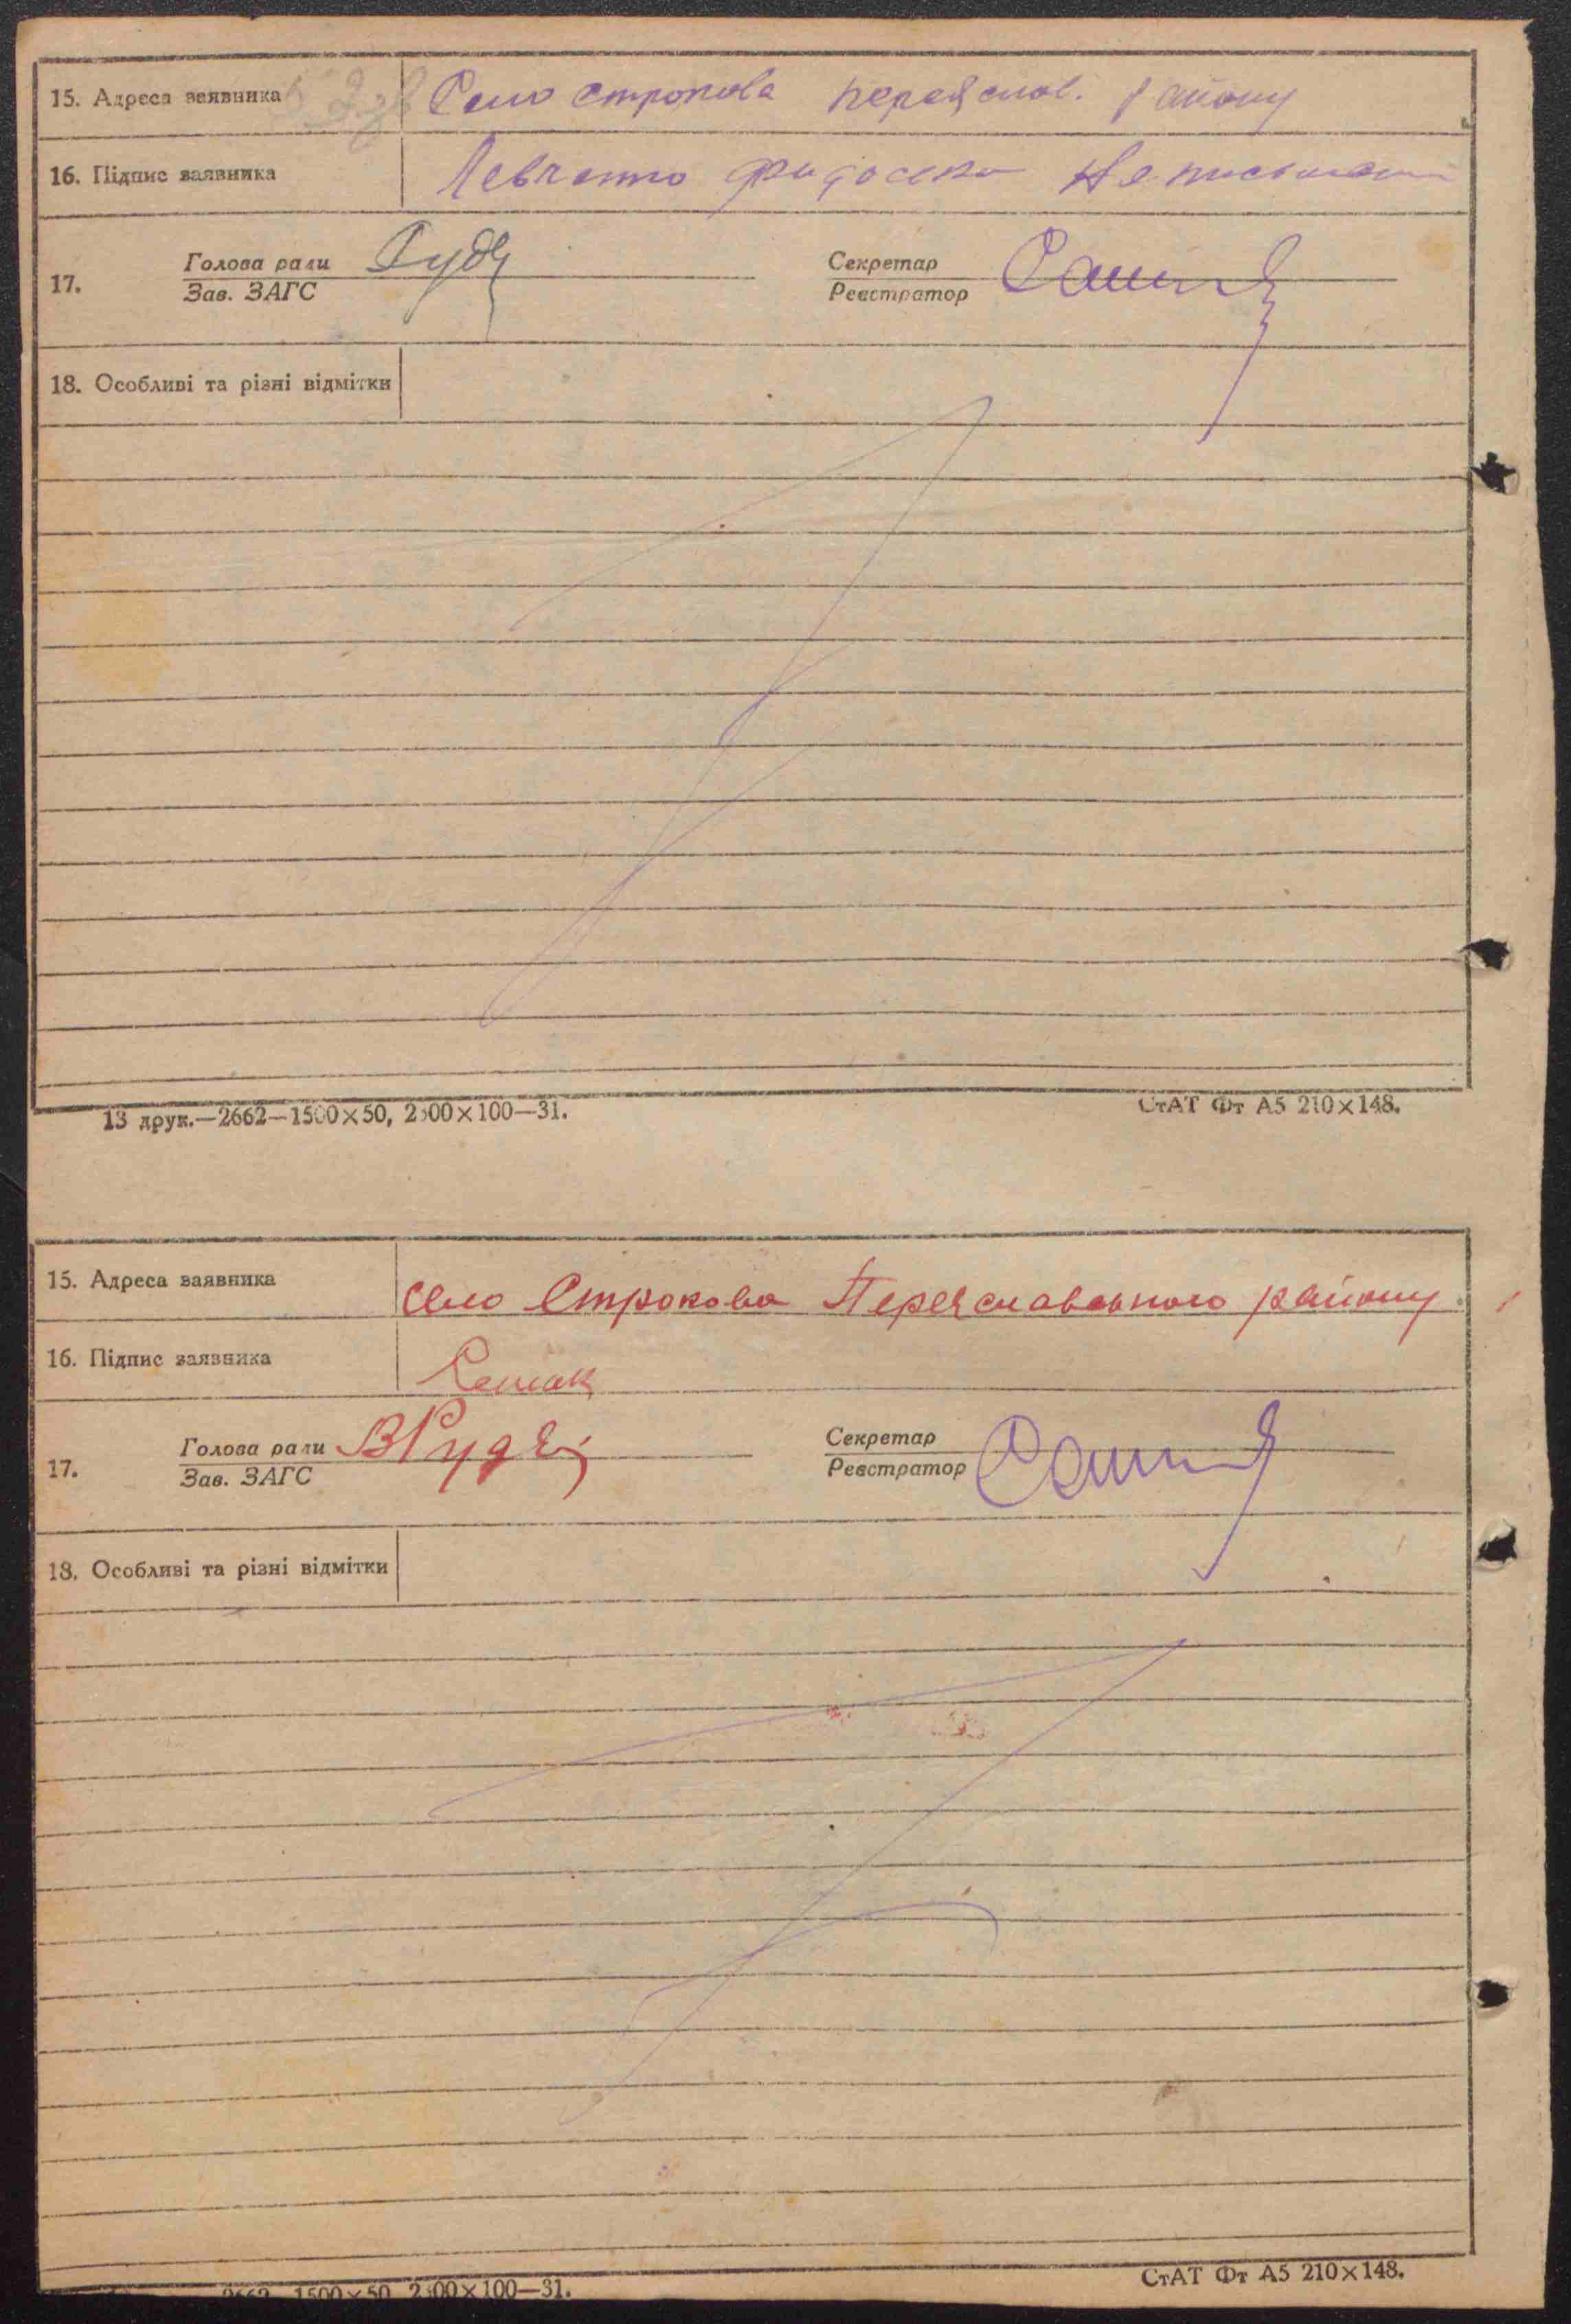 15. Адреса заявника Село Строкова Переяслов. району
16. Підпис заявника Левченко Фидоська Не письменна
Голова ради Секретар
17.
Зав. ЗАГС Реєстратор
18. Особливі та різні відмітки
13 друк.—2662—1500×50, 2500×100—31. СтАТ Фт А5 210×148.
15. Адреса заявника село Строкова Переяславського району
16. Підпис заявника
Голова ради Секретар
17.
Зав. ЗАГС Реєстратор
18. Особливі та різні відмітки
2662 1500×50 2500×100—31. СтАТ Фт А5 210×148.